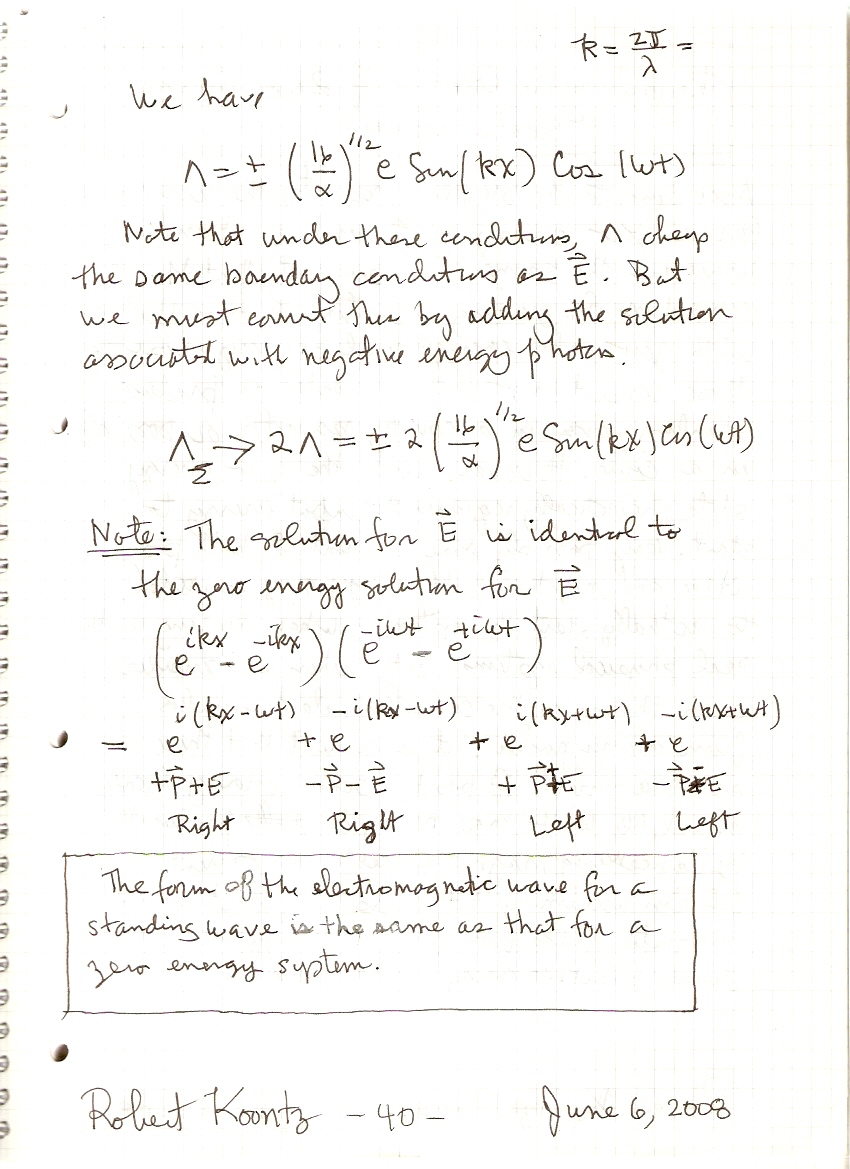 k = 2π/λ =
We have
Λ = ± (16/α)^1/2 e Sin(kx) Cos (ωt)
Note that under these conditions, Λ obeys
the same boundary conditions as E⃗. But
we must correct this by adding the solution
associated with negative energy photons.
Λ_Σ → 2Λ = ± 2 (16/α)^1/2 e Sin(kx) Cos(ωt)
Note: The solution for E⃗ is identical to
the zero energy solution for E⃗
(e^ikx - e^-ikx) (e^-iωt - e^+iωt)
= e^i(kx-ωt) + e^-i(kx-ωt) + e^i(kx+ωt) + e^-i(kx+ωt)
+P⃗+E -P⃗-E⃗ +P⃗ E -P⃗ E
Right Right Left Left
The form of the electromagnetic wave for a
standing wave is the same as that for a
zero energy system.
Robert Koontz - 40 - June 6, 2008